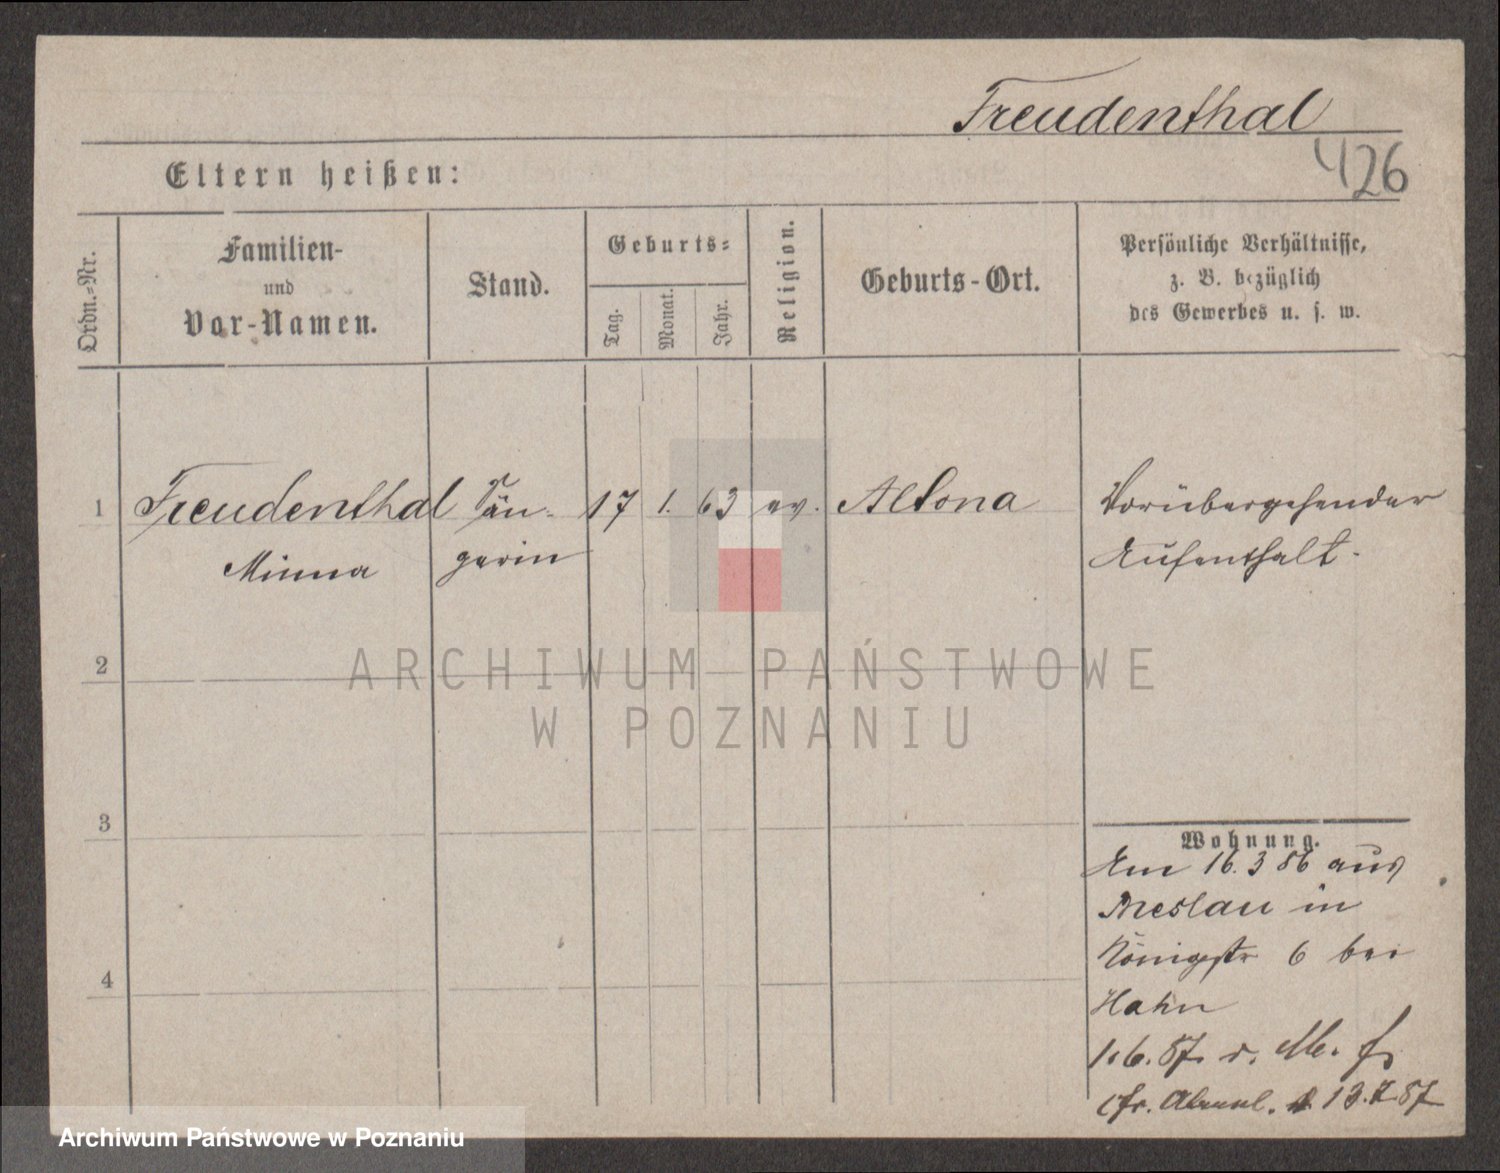 Freudenthal
426
Eltern heißen:
Ordn.-Nr.
Familien-
und
Vor-Namen.
Stand.
Geburts-
Tag.
Monat.
Jahr.
Religion.
Geburts-Ort.
Persönliche Verhältnisse,
z. B. bezüglich
des Gewerbes u. s. w.
1 Freudenthal Sän- 17 1. 63 ev. Altona Vorübergehender
Minna gerin Aufenthalt.
2
ARCHIWUM PAŃSTWOWE
W POZNANIU
3
Wohnung.
Am 16. 3 86 aus
Breslau in
Königstr 6 bei
4
Hahn
1.6.87
13.7.87
Archiwum Państwowe w Poznaniu